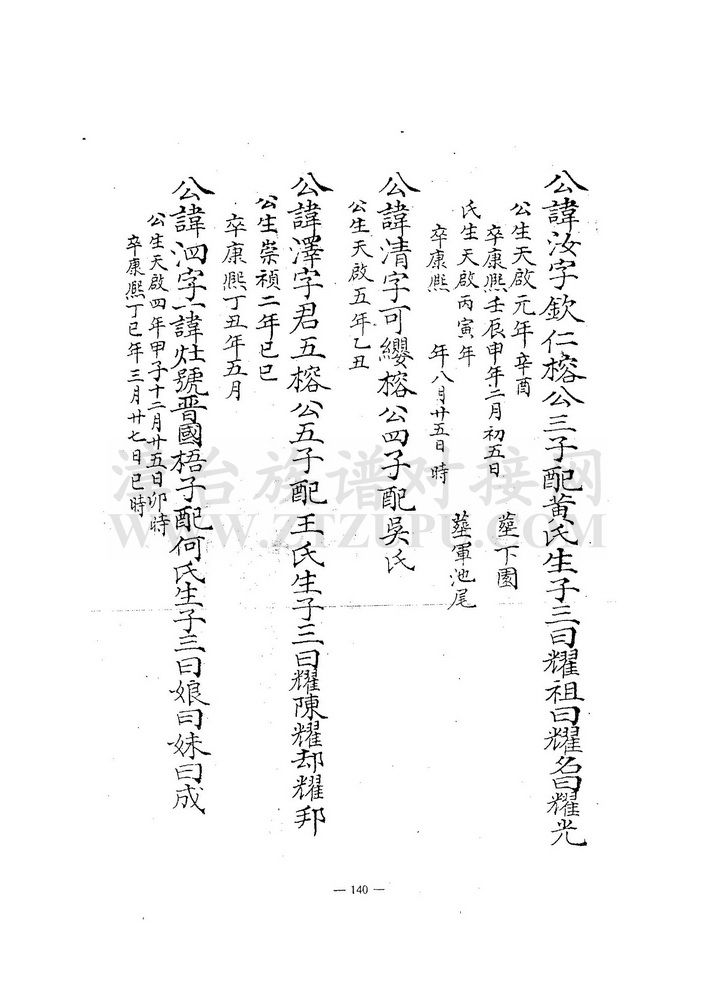 公諱汝字欽仁榕公三子配黄氏生子三曰耀祖曰耀名曰耀光
公生天啟元年辛酉
卒康熙壬辰申年二月初五日 塟下園
氏生天啟丙寅年
卒康熙 年八月廿五日時 塟軍池尾
公諱清字可纓榕公四子配吳氏
公生天啟五年乙丑
公諱澤字君五榕公五子配王氏生子三曰耀陳耀却耀邦
公生崇禎二年已巳
卒康熙丁丑年五月
公諱泗字一諱灶號晋國梧子配何氏生子三曰娘曰妹曰成
公生天啟四年甲子十二月廿五日卯時
卒康熙丁巳年三月廿七日巳時
漳台族谱对接网
WWW.ZTZUPU.COM
— 140 —